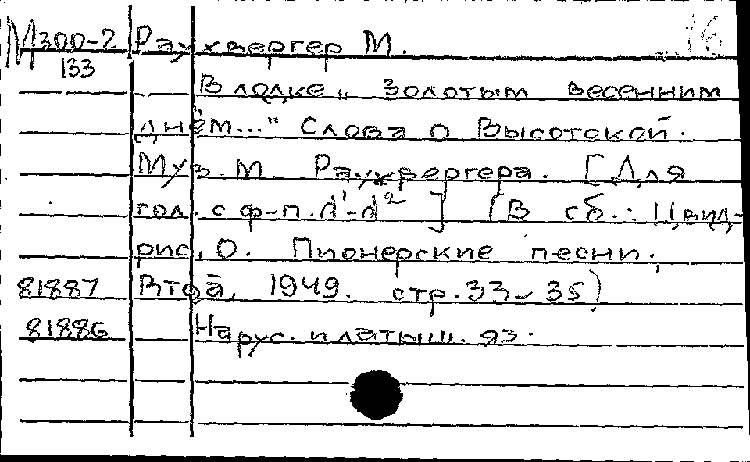 М300-2 Раухвергер М. 16
133
В лодке „ Золотым весенним
днём..." Слова О Высотской.
Муз. М. Раухвергера. [Для
гол. с ф-п. d¹-d²] (В сб.: Цвид-
рис, О. Пионерские песни.
81887 1949. стр. 33-35)
81886 На рус. и латыш. яз.